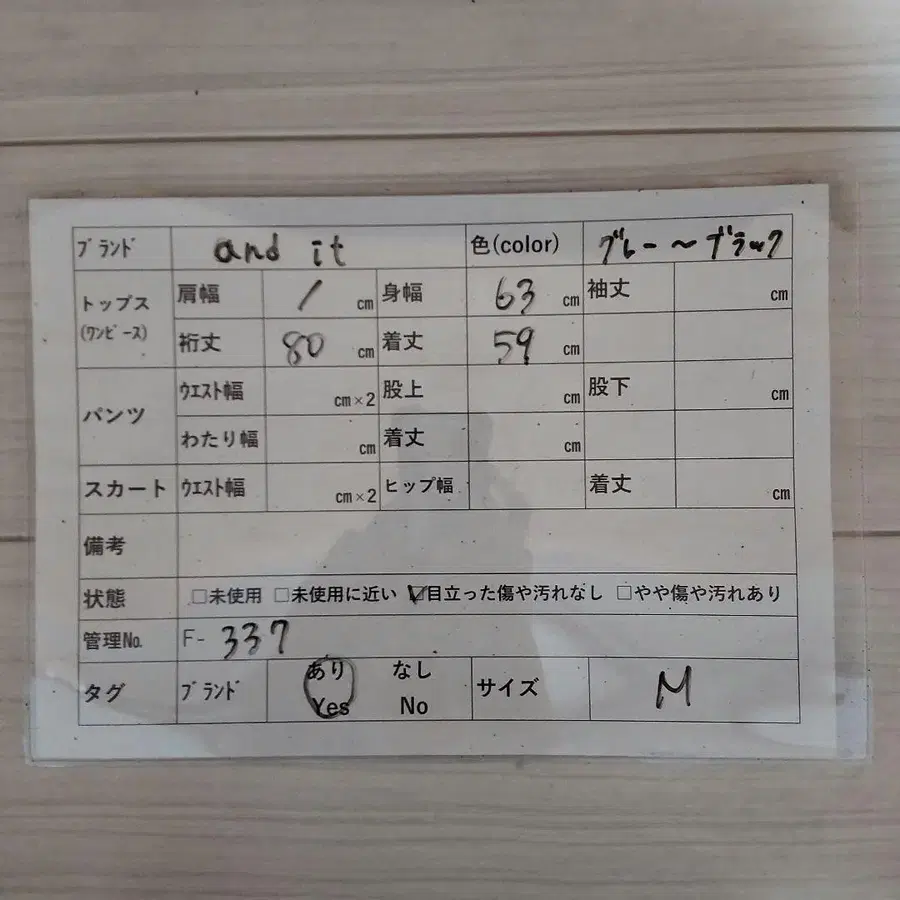 ブランド and it 色(color) グレー～ブラック
トップス 肩幅 / cm 身幅 63 cm 袖丈 cm
(ワンピース) 裄丈 80 cm 着丈 59 cm
パンツ ウエスト幅 cm×2 股上 cm 股下 cm
わたり幅 cm 着丈 cm
スカート ウエスト幅 cm×2 ヒップ幅 着丈 cm
備考
状態 □未使用 □未使用に近い ☑目立った傷や汚れなし □やや傷や汚れあり
管理No. F- 337
タグ ブランド あり なし サイズ M
Yes No